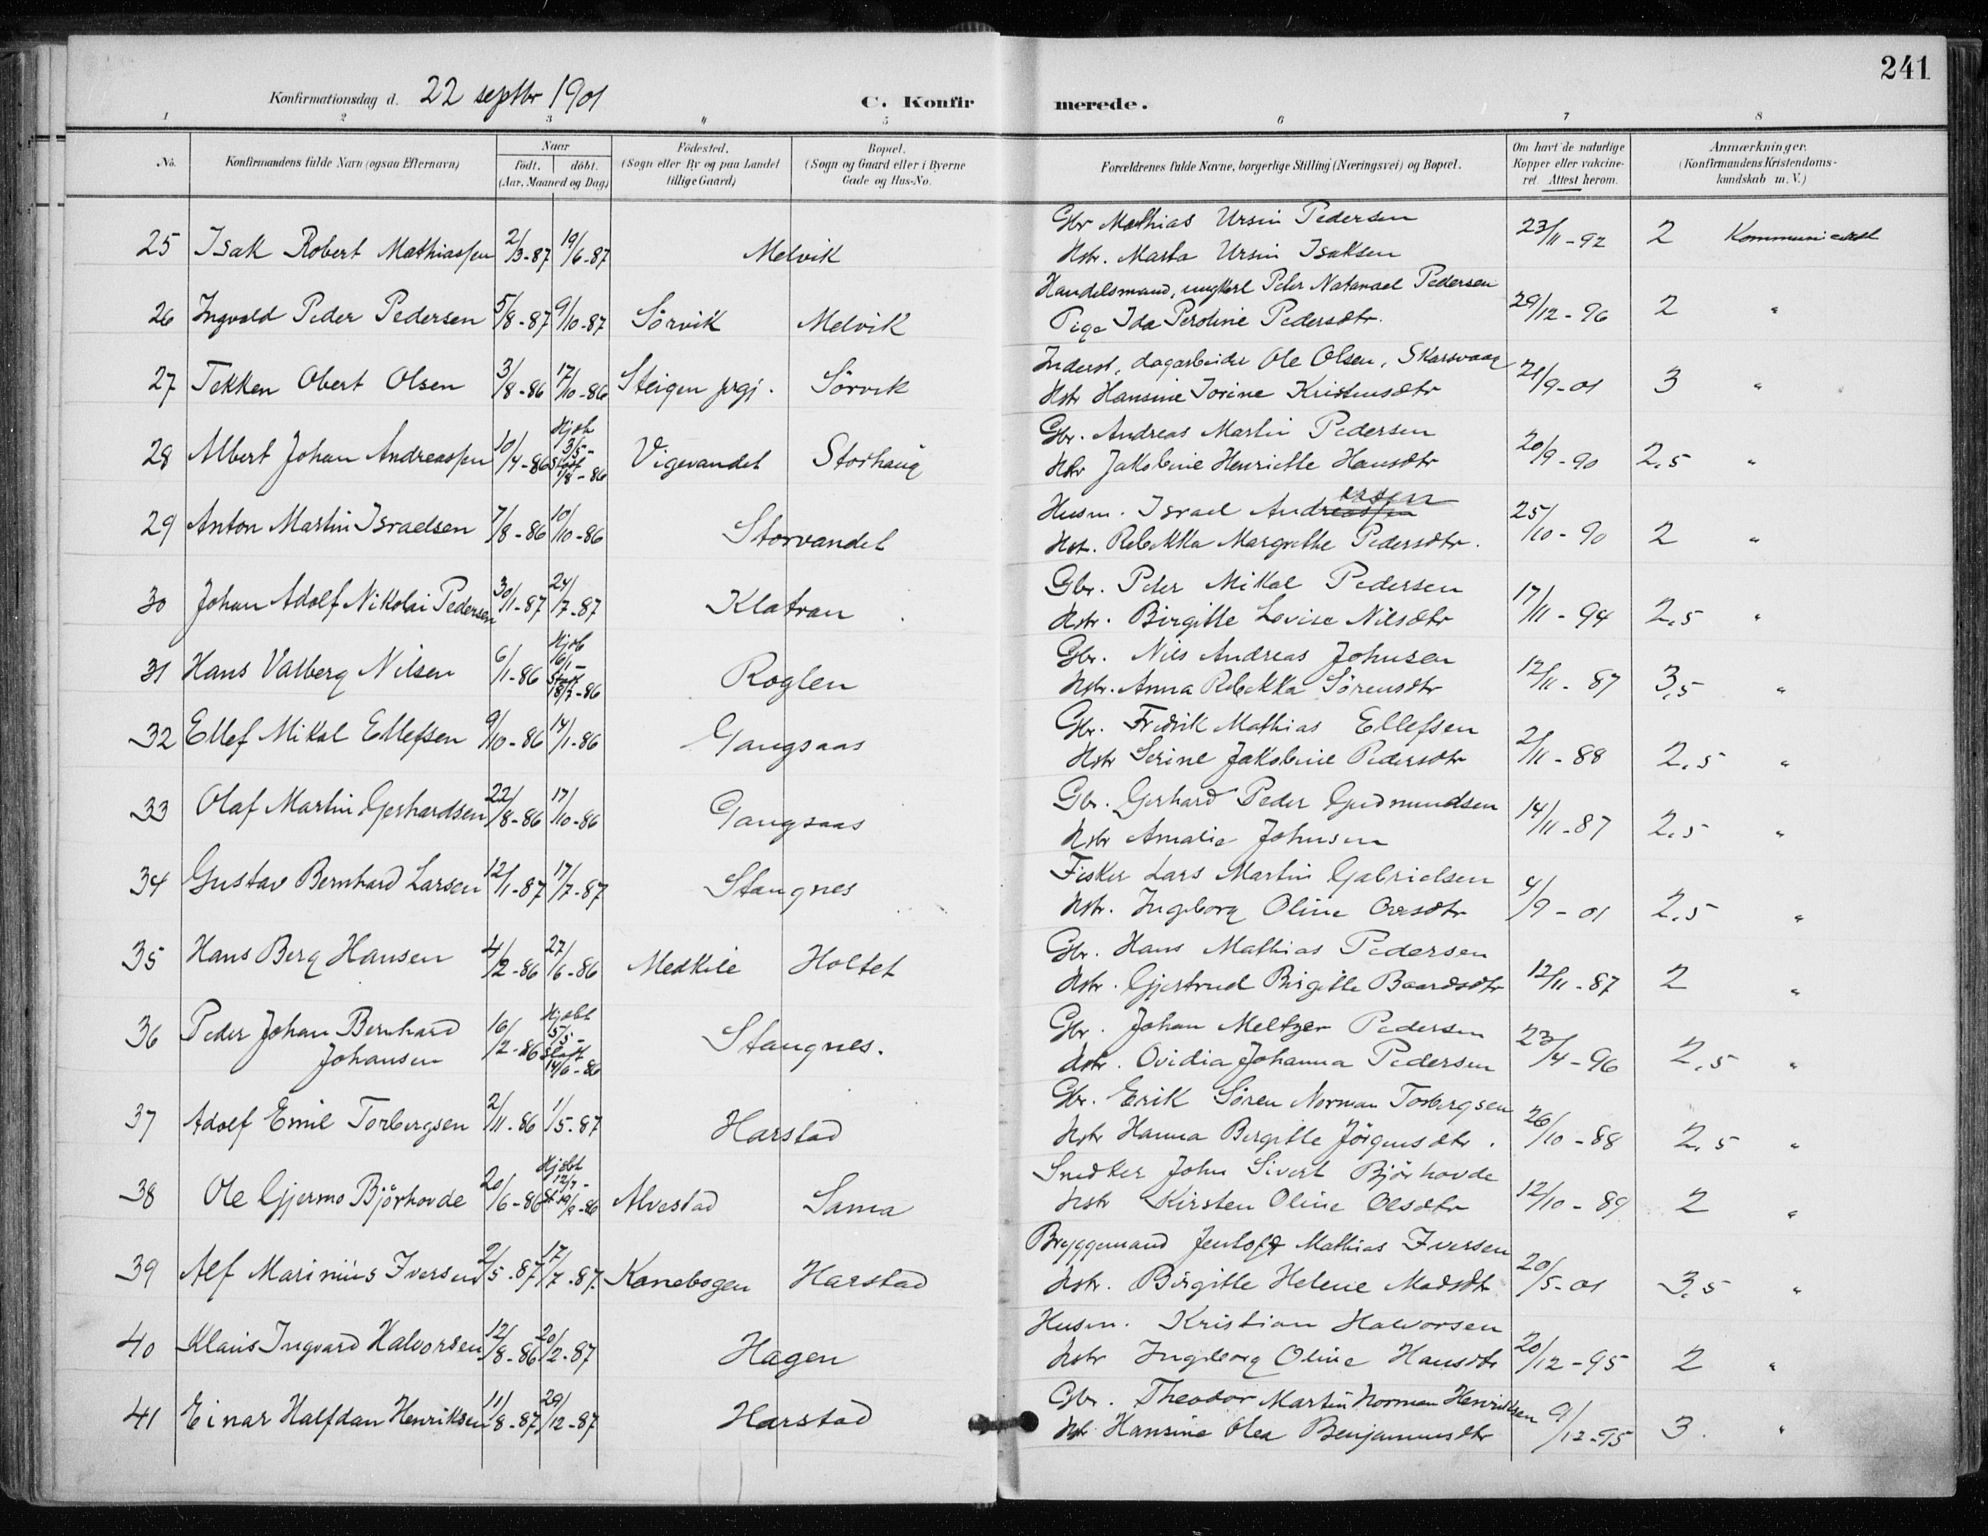 241
Konfirmationsdag d. 22 septbr 1901
C. Konfirmerede.
1 2 3 4 5 6 7 8
No. Konfirmandens fulde Navn (ogsaa Efternavn) Naar födt. döbt. (Aar, Maaned og Dag) Födested. (Sogn eller By og paa Landet tillige Gaard) Bopæl. (Sogn og Gaard eller i Byerne Gade og Hus-No. Forældrenes fulde Navne, borgerlige Stilling (Næringsvei) og Bopæl. Om havt de naturlige Kopper eller vakcineret. Attest herom. Anmærkninger. (Konfirmandens Kristendomskundskab m. V.)
25 Isak Robert Mathiassen 2/3-87 19/6-87 Melvik Gbr Mathias Ursin Pedersen 23/11-92 2
Hstr. Marta Ursin Isaksen
26 Ingvald Peder Pedersen 5/8-87 9/10-87 Sörvik Melvik Handelsmand, ungkarl Peter Natanael Pedersen 29/12-96 2 "
Pige Ida Peroline Pedersdtr.
27 Tekken Obert Olsen 3/8-86 17/10-86 Steigen prgj. Sörvik Inderst, dagarbeider Ole Olsen, Skarsvaag 21/9-01 3 "
Hstr Hansine Jorine Kristensdtr
28 Albert Johan Andreassen 10/4-86 Hjdb 3/5- Stadf 1/8-86 Vigevandet Storhaug Gbr. Andreas Martin Pedersen 20/9-90 2,5 "
Hstr Jakobine Henriette Hansdtr
29 Anton Martin Israelsen 7/8-86 10/10-86 Storvandet Husm. Israel Andreassen ersen 25/10-90 2 "
Hstr. Rebekka Margrethe Pedersdtr.
30 Johan Adolf Nikolai Pedersen 30/1-87 24/7-87 Klatran Gbr. Peter Mikal Pedersen 17/11-94 2,5 "
Hstr. Birgitte Lovise Nilsdtr
31 Hans Valberg Nilsen 6/1-86 Hjdb 16/1- Roglen Gbr. Nils Andreas Johnsen 12/11-87 3,5 "
Hstr. Anna Rebekka Sörensdtr
32 Ellef Mikal Ellefsen 9/10-86 14/1-86 Gangsaas Gbr. Fredrik Mathias Ellefsen 2/11-88 2,5 "
Hstr Serine Jakobine Pedersdtr
33 Olaf Martin Gerhardsen 22/8-86 17/10-86 Gangsaas Gbr. Gerhard Peder Gudmundsen 14/11-87 2,5 "
Hstr Amalie Johnsen
34 Gustav Bernhard Larsen 12/1-87 17/7-87 Stangnes Fisker Lars Martin Gabrielsen 4/9-01 2,5 "
Hstr. Ingeborg Oline
35 Hans Berg Hansen 4/2-86 27/6-86 Medkile Holtet Gbr. Hans Mathias Pedersen 12/11-87 2 "
Hstr. Gjertrud Birgitte Baardsdtr
36 Peder Johan Bernhard Johansen 16/2-86 Hjdbt 15/5- Stadf 14/6-86 Stangnes. Gbr. Johan Meltzer Pedersen 23/4-96 2,5 "
Hstr. Ovidia Johanna Pedersen
37 Adolf Emil Torbergsen 2/11-86 1/5-87 Harstad Gbr. Erik Sören Norman Torbergsen 26/10-88 2,5 "
Hstr Hanna Bergitte Jörgensdtr.
38 Ole Gjermo Björhovde 20/6-86 Hjdbt 12/7- St 19/9-86 Alvestad Sama Snedker John Sivert Björhovde 12/10-89 2 "
Hstr Kirsten Oline Olsdtr
39 Alf Marinius Iversen 2/5-87 17/7-87. Kanebogen Harstad Bryggemand Jentoft Mathias Iversen 20/5-01 3,5 "
Hstr. Birgitte Helene Madsdtr
40 Klaus Ingvard Halvorsen 12/8-86 20/2-87 Hagen Husm. Kristian Halvorsen 20/12-95 2 "
Hstr Ingeborg Oline Hansdtr
41 Einar Halfdan Henriksen 11/8-87 29/12-87 Harstad Gbr. Theodor Martin Norman Henriksen 9/12-95 3. "
Hstr Hansine Olea Benjaminsdtr